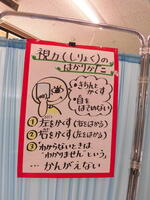 視力(しりょく)の
はかりかた
・きちんと
かくす
・目を
ほそめない
①左をかくす(右をはかる)
②右をかくす(左をはかる)
③わからないときは
「わかりません」という。
…かんがえない